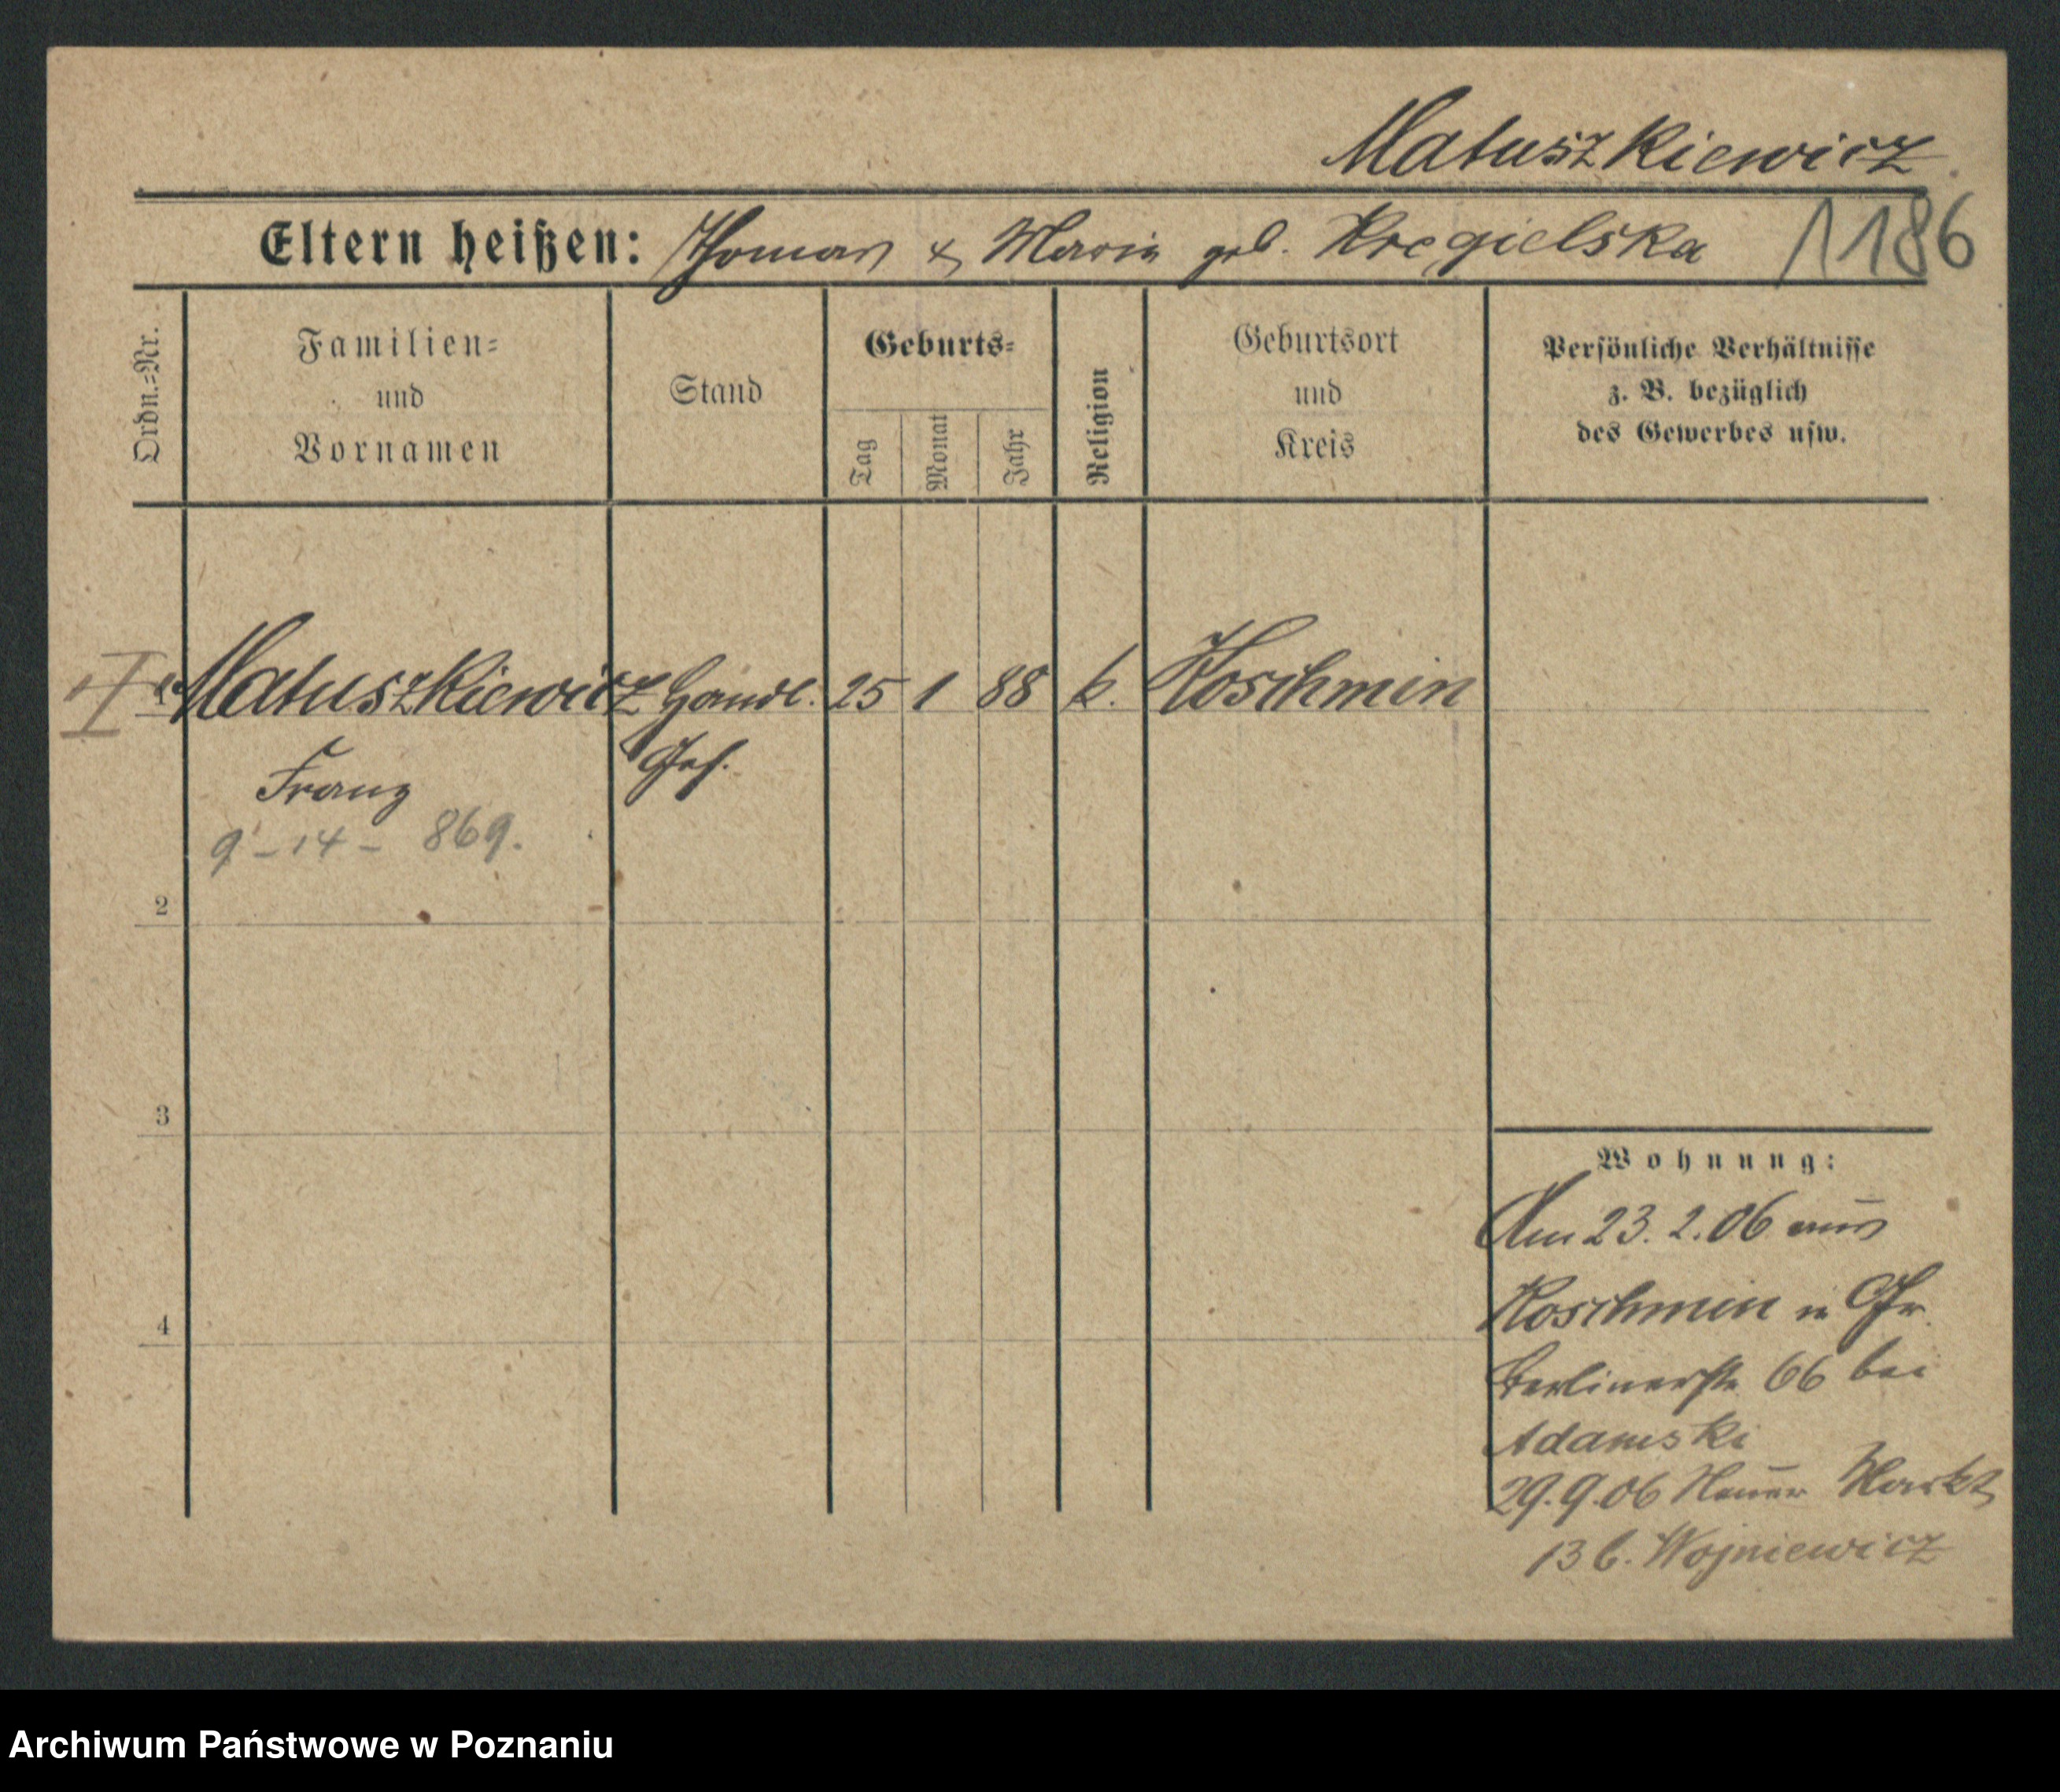 Matuszkiewicz
Eltern heißen: Thomas & Maria geb. Kręgielska
1186
Ordn.=Nr.
Familien=
und
Vornamen
Stand
Geburts=
Tag
Monat
Jahr
Religion
Geburtsort
und
Kreis
Persönliche Verhältnisse
z. B. bezüglich
des Gewerbes usw.
1 Matuszkiewicz Handl. 25 1 88 k. Koschmin
Franz Geh.
9-14- 869.
2
3
4
Wohnung:
Am 23.2.06 aus
Koschmin in
Berlinerstr 66 bei
Adamski
29.9.06 Neuer Markt
13 b. Wojniewicz
Archiwum Państwowe w Poznaniu